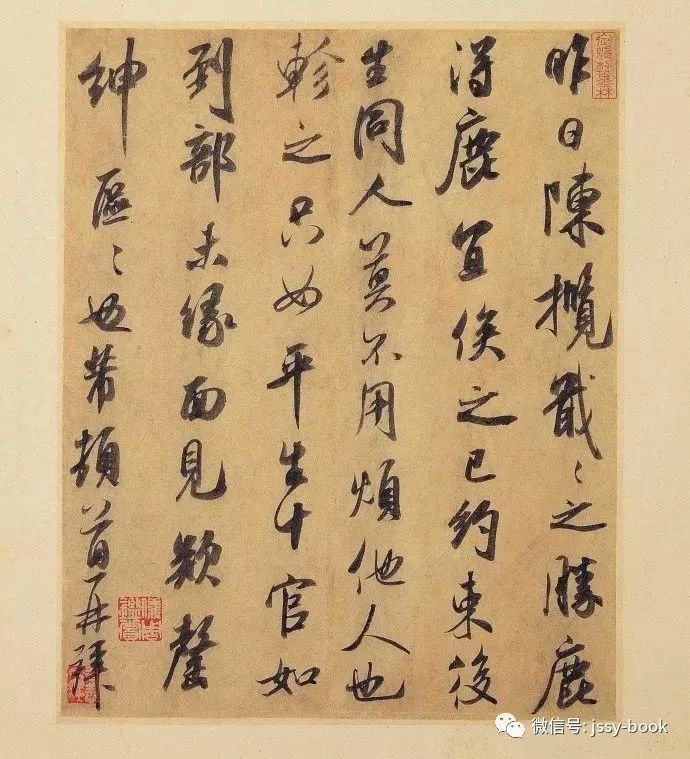 昨日陳攬戢〻之勝鹿
得鹿宜俟之已約束後
生同人莫不用煩他人也
軫之只如平生十官如
到部未緣面見欵罄
紳區〻也芾頓首再拜
微信号: jssy-book